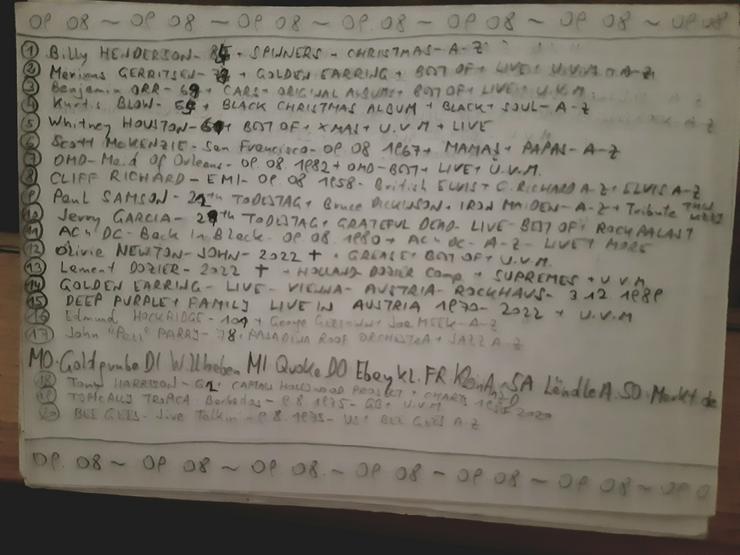 09 08 ~ 09 08 ~ 09 08 ~ 09 08 ~ 09 08 ~ 09 08
1 Billy HENDERSON - + SPINNERS + CHRISTMAS - A-Z
2 GERRITSEN - + GOLDEN EARRING + BEST OF + LIVE + U.V.M + A-Z
3 Benjamin ORR - + CARS + ORIGINAL ALBUMS + BEST OF + LIVE + U.V.M
4 Kurtis BLOW - + BLACK CHRISTMAS ALBUM + BLACK + SOUL - A-Z
5 Whitney HOUSTON - + BEST OF + XMAS + U.V.M + LIVE
6 Scott McKENZIE - San Francisco - 09 08 1967 + MAMAS + PAPAS - A-Z
7 OMD - Maid Of Orleans - 09 08 1982 + OMD - BEST + LIVE + U.V.M.
8 CLIFF RICHARD - EMI - 09 08 1958 - British ELVIS + C. RICHARD A-Z + ELVIS A-Z
9 Paul SAMSON - TODESTAG + Bruce DICKINSON + IRON MAIDEN - A-Z + Tribute
10 Jerry GARCIA - TODESTAG + GRATEFUL DEAD - LIVE - BEST OF + ROCKPALAST
11 AC DC - Back In Black - 09 08 1980 + AC DC - A-Z - LIVE + MORE
12 Olivia NEWTON-JOHN - 2022 † + GREASE + BEST OF + U.V.M.
13 Lamont DOZIER - 2022 † + HOLLAND DOZIER Comp. + SUPREMES + U.V.M
14 GOLDEN EARRING - LIVE - VIENNA - AUSTRIA - ROCKHAUS - 3 12 1989
15 DEEP PURPLE + FAMILY LIVE IN AUSTRIA 1970 - 2022 + U.V.M
16 Edmund HOCKRIDGE - + George + Joe MEEK - A-Z
17 John PARRY - 78 + PASADENA ROOF ORCHESTRA + JAZZ A-Z
MO. Goldgrube DI Willhaben MI Quoka DO Ebay Kl. FR SA Ländle A. SO. Markt.de
18 Tony HARRISON - HOLLYWOOD + CHARTS
19 Barbados - 9.8 1975 - GB + U.V.M
20 BEE GEES - Jive Talkin - 9.8 1975 - US + BEE GEES A-Z
09. 08 ~ 09 08 ~ 09 08 - 09 08 - 09 08 ~ 09 08 ~ 09 0